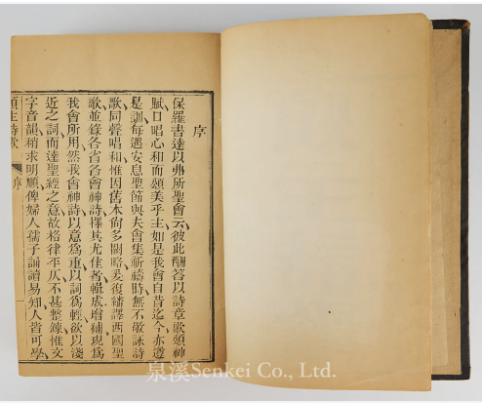 序
保羅書達以弗所聖會云彼此酬答以詩章歌頌神
賦口唱心和而頌美乎主如是我會自昔迄今亦遵
是訓每遇安息聖節與夫會集祈禱時無不敬詠詩
歌同聲唱和惟因舊本尚多闕略爰復繙譯西國聖
歌並錄各省各會神詩擇其尤佳者輯成增補現為
我會所用然我會神詩以意為重以詞為輕欲以淺
近之詞而達聖經之意故格律平仄不甚整鍊惟文
字音韻稍求明順俾婦人孺子誦讀易知人皆可學
頌主詩歌
序
泉溪Senkei Co., Ltd.